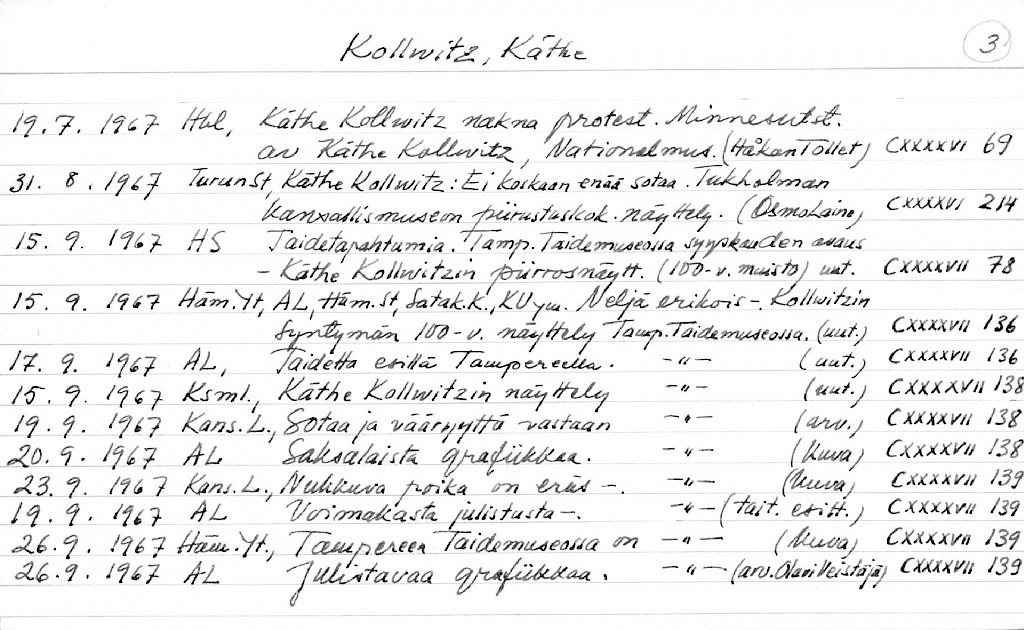 Kollwitz, Käthe 3
19.7. 1967 Hbl, Käthe Kollwitz nakna protest. Minnesutst.
av Käthe Kollwitz, Nationalmus. (Håkan Tollet) CXXXXVI 69
31. 8. 1967 Turun St, Käthe Kollwitz: Ei koskaan enää sotaa. Tukholman
Kansallismuseon piirustuskok. näyttely. (Osmo Laine) CXXXXVI 214
15. 9. 1967 HS Taidetapahtumia. Tamp. Taidemuseossa syyskauden avaus
- Käthe Kollwitzin piirrosnäytt. (100-v. muisto) uut. CXXXXVII 78
15. 9. 1967 Häm. Yt, AL, Häm. St, Satak. K., KU ym. Neljä erikois-. Kollwitzin
syntymän 100-v. näyttely Tamp. Taidemuseossa. (uut.) CXXXXVII 136
17. 9. 1967 AL, Taidetta esillä Tampereella. -"- (uut.) CXXXXVII 136
15. 9. 1967 Ksml., Käthe Kollwitzin näyttely -"- (uut.) CXXXXVII 138
19. 9. 1967 Kans. L., Sotaa ja vääryyttä vastaan -"- (arv.) CXXXXVII 138
20. 9. 1967 AL Saksalaista grafiikkaa. -"- (kuva) CXXXXVII 138
23. 9. 1967 Kans. L., Nukkuva poika on eräs -. -"- (kuva) CXXXXVII 139
19. 9. 1967 AL Voimakasta julistusta-. -"- (tait. esitt.) CXXXXVII 139
26. 9. 1967 Häm. Yt., Tampereen Taidemuseossa on -"- (kuva) CXXXXVII 139
26. 9. 1967 AL Julistavaa grafiikkaa. -"- (arv. Olavi Veistäjä) CXXXXVII 139